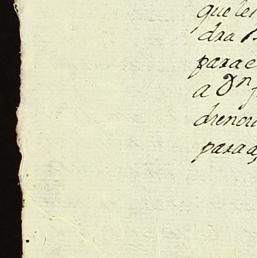 que le
dra
para e
a Dn
drenou
para a